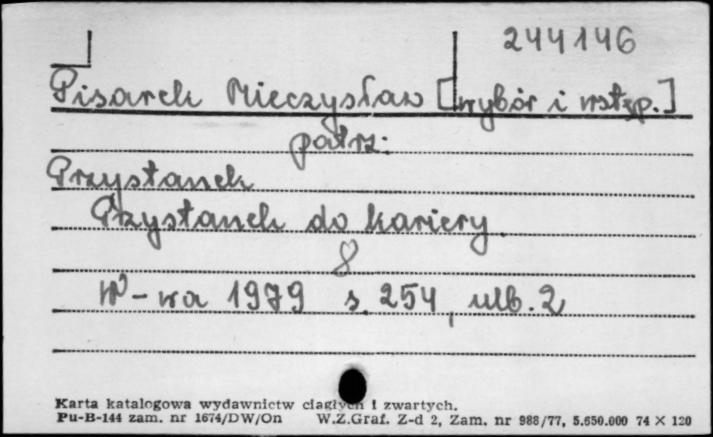 244146
Pisarek Mieczysław [wybór i wstęp.]
patrz:
Przystanek
Przystanek do kariery.
8
W-wa 1979 s. 254, nlb. 2
Karta katalogowa wydawnictw ciągłych i zwartych.
Pu-B-144 zam. nr 1674/DW/On W.Z.Graf. Z-d 2, Zam. nr 988/77, 5.650.000 74 X 120